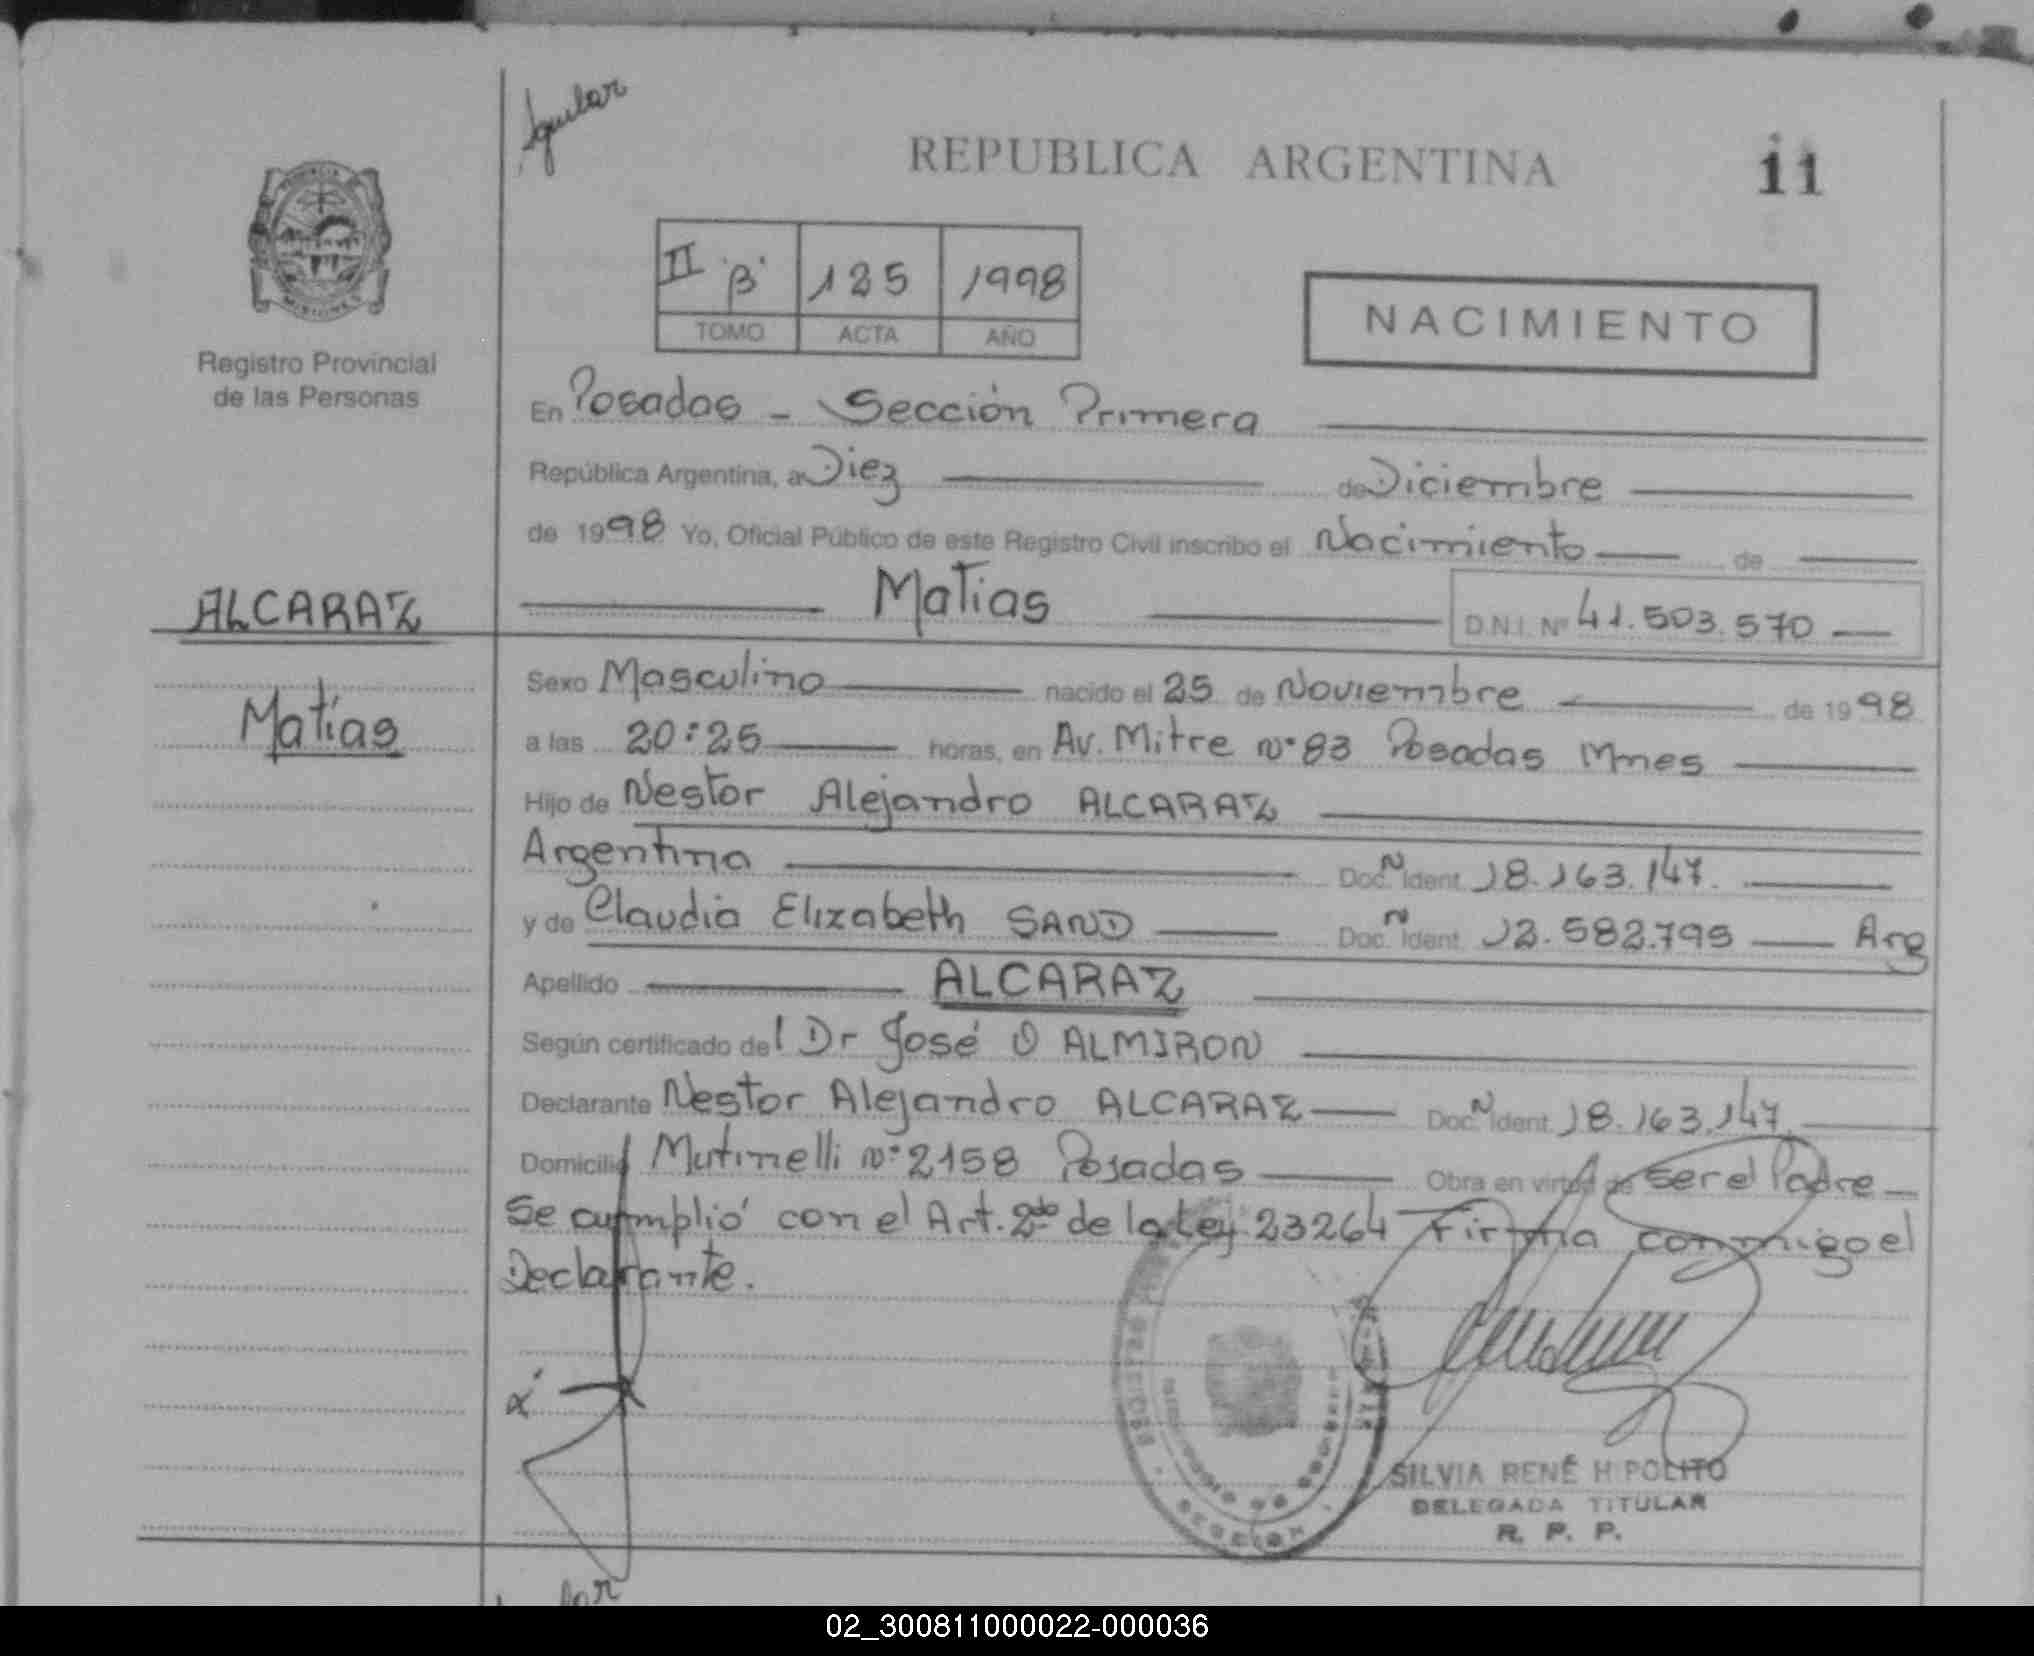 Aguilar
REPUBLICA ARGENTINA
11
II "B" 125 1998
TOMO ACTA AÑO
NACIMIENTO
Registro Provincial
de las Personas
En Posadas - Sección Primera
República Argentina, a Diez de Diciembre
de 1998 Yo, Oficial Público de este Registro Civil inscribo el Nacimiento de
Matias D.N.I. Nº 41.503.570
ALCARAZ
Matías
Sexo Masculino nacido el 25 de Noviembre de 1998
a las 20:25 horas, en Av. Mitre Nº 83 Posadas Mnes
Hijo de Nestor Alejandro ALCARAZ
Argentina Doc. N Ident. 18.163.147.
y de Claudia Elizabeth SAND Doc. N Ident. 12.582.795 Arg
Apellido ALCARAZ
Según certificado del Dr José O ALMIRON
Declarante Nestor Alejandro ALCARAZ Doc. N Ident. 18.163.147.
Domicilio Mutinelli Nº 2158 Posadas Obra en virtud de ser el Padre
Se cumplió con el Art. 2do de la Ley 23264 Firma conmigo el
Declarante.
SILVIA RENÉ HIPOLITO
DELEGADA TITULAR
R. P. P.
02_300811000022-000036